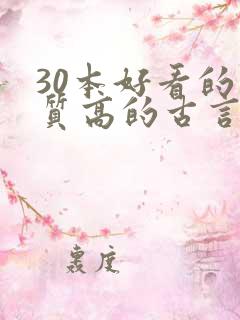 30本好看的
質高的古言
裏度